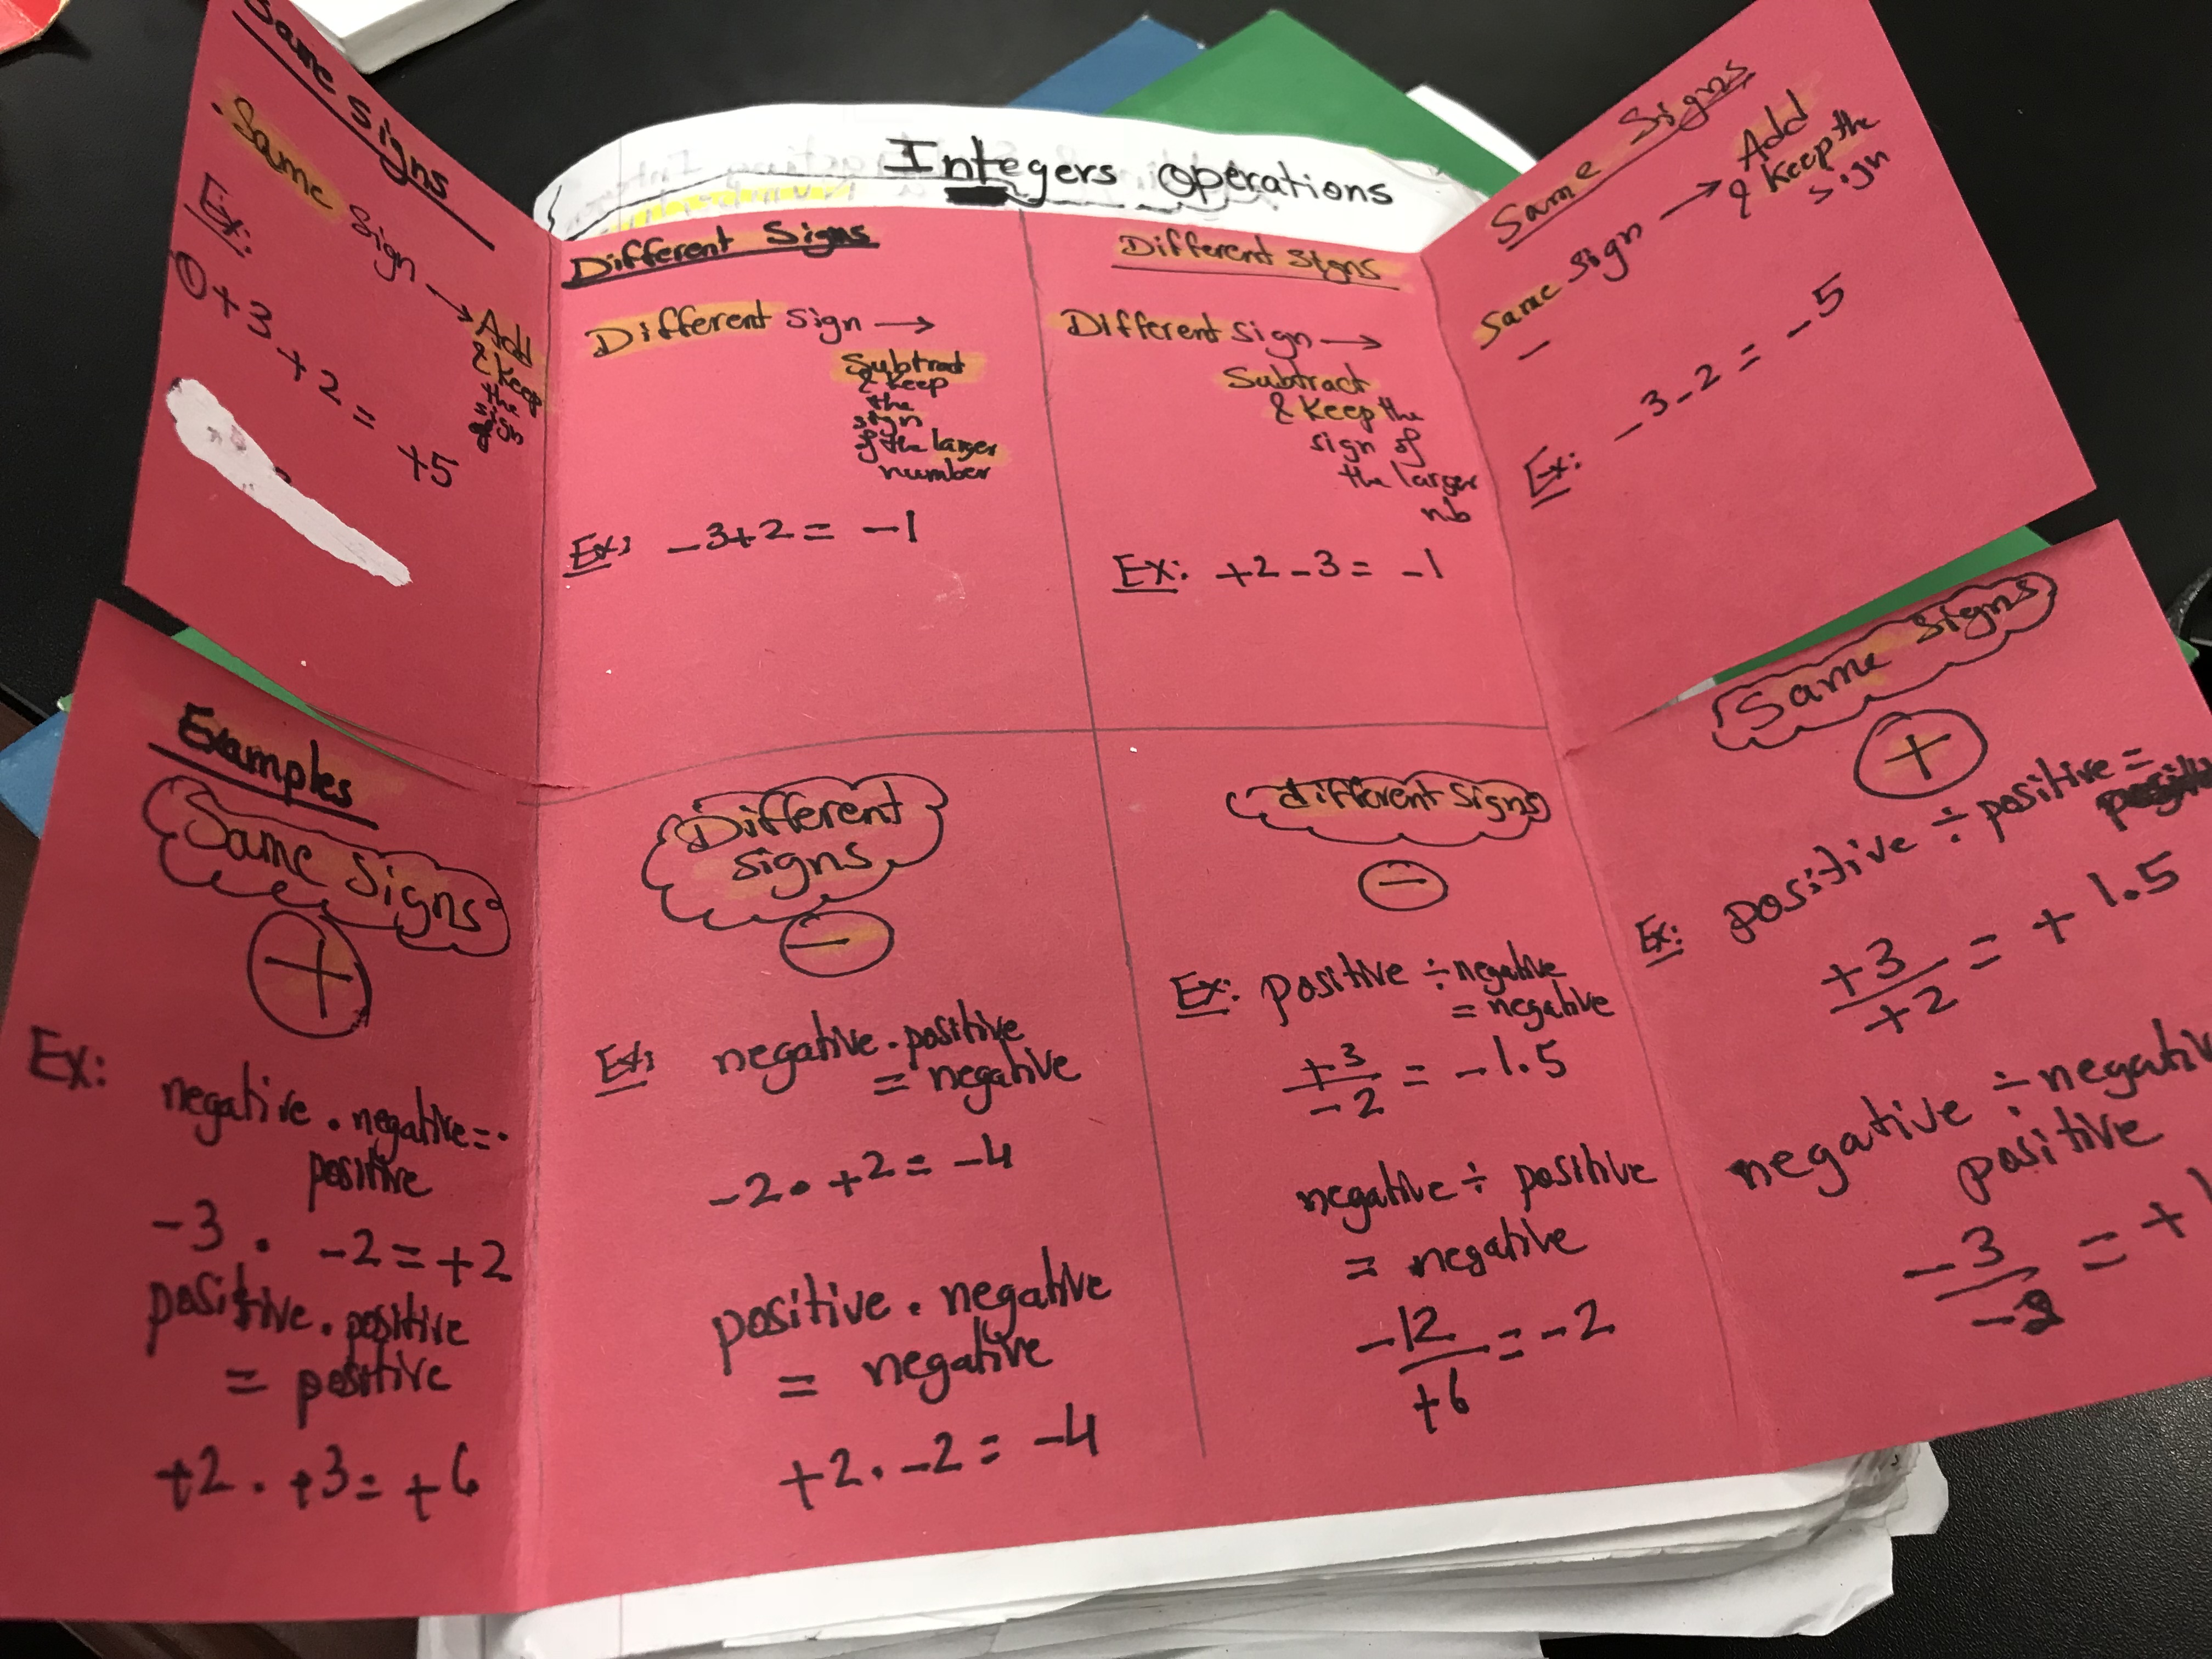 Integers operations
Same Signs
Same Sign → Add
& Keep
the
sign
Ex:
① +3 +2 = +5
Different Signs
Different sign →
Subtract
& Keep
the
sign
of the larger
number
Ex: -3+2 = -1
Different Signs
Different sign →
Subtract
& Keep the
sign of
the larger
nb
Ex: +2-3 = -1
Same Signs
Same sign → Add
& Keep the
sign
Ex: -3-2 = -5
Examples
Same Signs
+
Ex:
negative . negative =
positive
-3 . -2 = +2
positive . positive
= positive
+2 . +3 = +6
Different
signs
-
Ex: negative . positive
= negative
-2 . +2 = -4
positive . negative
= negative
+2 . -2 = -4
different Signs
-
Ex: positive ÷ negative
= negative
+3
-2 = -1.5
negative ÷ positive
= negative
-12
+6 = -2
Same Signs
+
Ex: positive ÷ positive =
+3
+2 = +1.5
negative ÷
positive
-3
= +